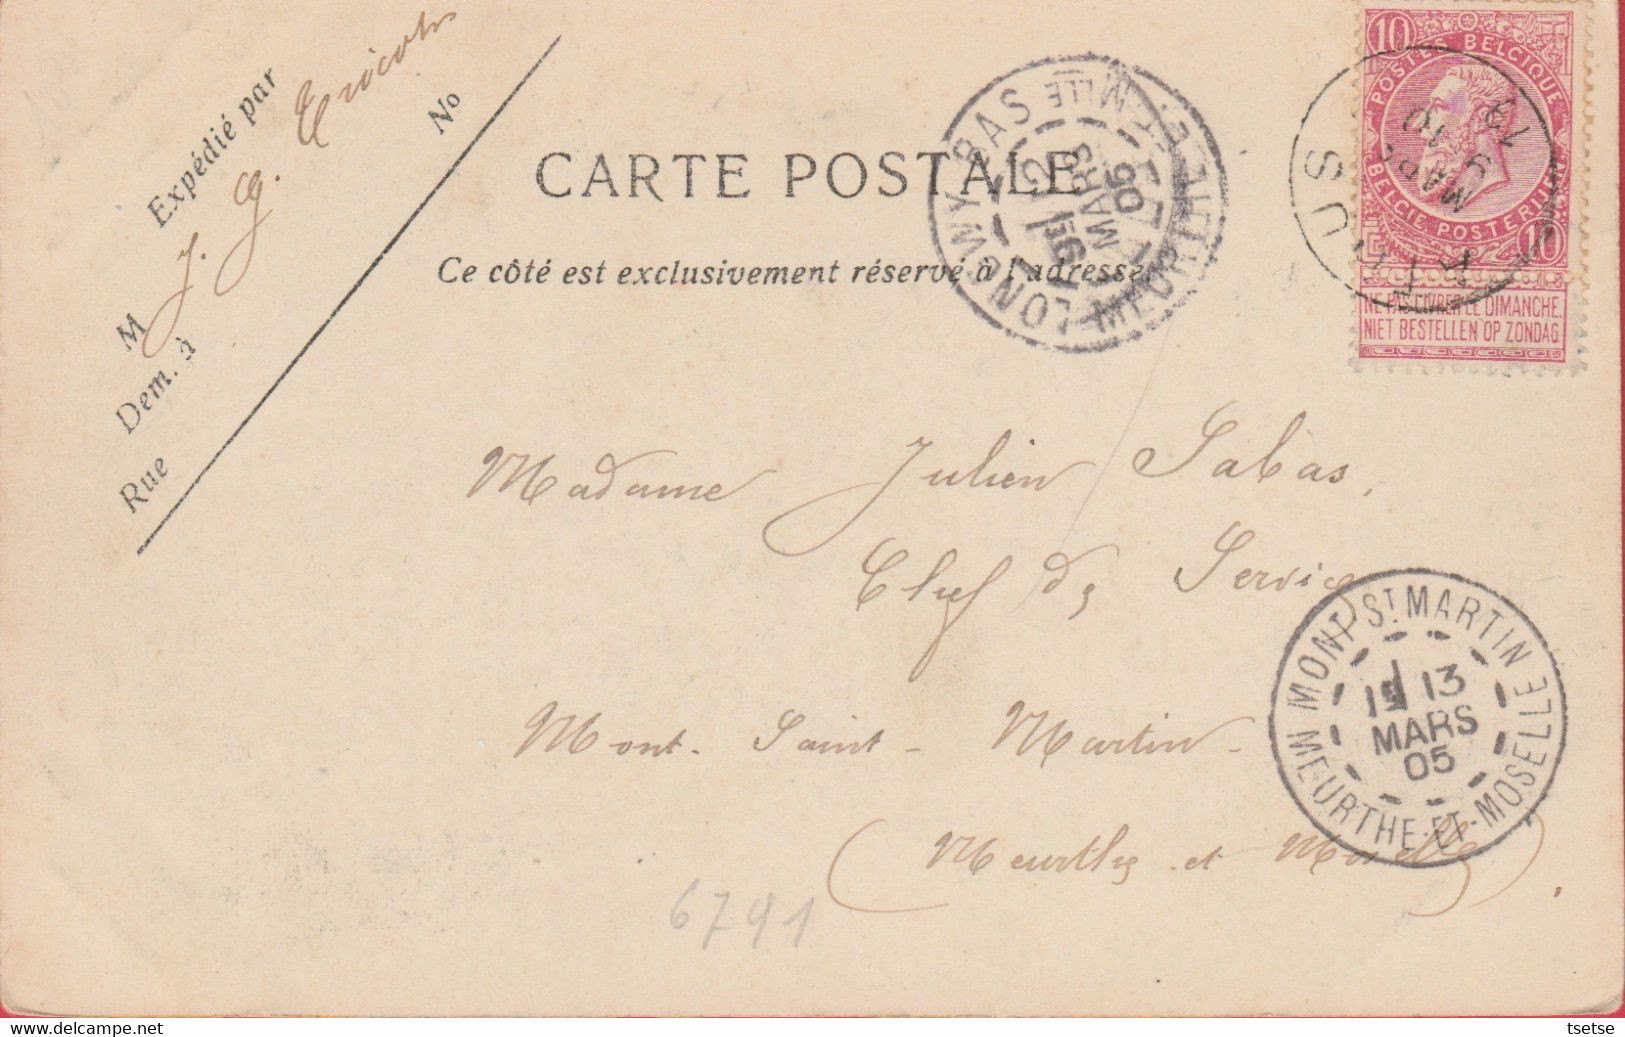 CARTE POSTALE
Ce côté est exclusivement réservé à l'adresse
Expédié par
M J. G.
No
Dem. à
Rue
10 10
POSTES BELGIQUE
BELGIE POSTERIJEN
NE PAS LIVRER LE DIMANCHE.
NIET BESTELLEN OP ZONDAG
9 MARS
LONGWY-BAS
MEURTHE-ET-MLLE
12
MARS
05
Madame Julien Sabas,
Chef de Service
Mont-Saint-Martin-
(Meurthe et Moselle).
MONT-ST-MARTIN
MEURTHE-ET-MOSELLE
13
MARS
05
6791
tsetse